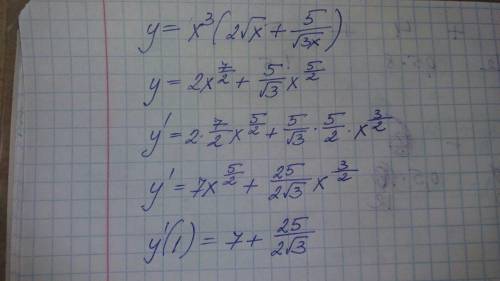 y = x³(2√x + 5/√3x)
y = 2x^(7/2) + 5/√3 x^(5/2)
y' = 2·7/2 x^(5/2) + 5/√3 · 5/2 · x^(3/2)
y' = 7x^(5/2) + 25/2√3 x^(3/2)
y'(1) = 7 + 25/2√3